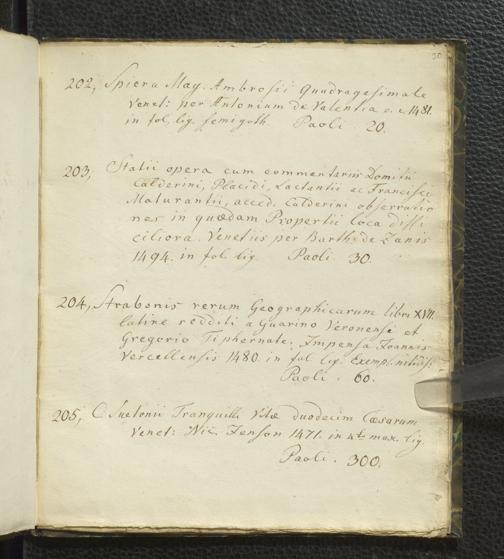 30
202, Spiera Mag. Ambrosii Quadragesimale
Venet: per Antonium de Valentia 1481.
in fol. lig. semigoth. Paoli 20.
203, Statii opera cum commentariis Domitii
Calderini, Placidi, Lactantii ac Francisci
Maturantii, acced. Calderini observatio
nes in quædam Propertii loca diffi
ciliora. Venetiis per Barth: de Zanis
1494. in fol. lig. Paoli 30.
204, Strabonis rerum Geographicarum libri XVII
latine redditi a Guarino Veronense et
Gregorio Tiphernate. Impensa Joannis
Vercellensis 1480. in fol. lig. Exempl. nitidiss.
Paoli. 60.
205, C. Suetonii Tranquilli Vitæ duodecim Cæsarum
Venet: Nic. Jenson 1471. in 4to max. lig.
Paoli. 300.